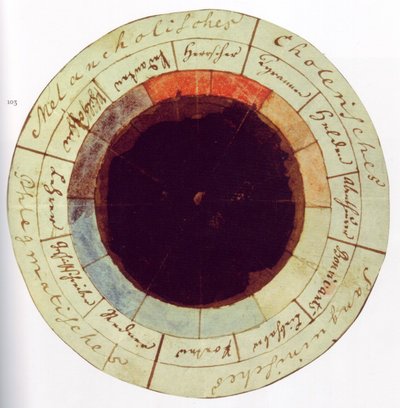 103
Melancholisches
Cholerisches
Sanguinisches
Phlegmatisches
Herrscher
Tyrannen
Helden
Abentheurer
Bonvivants
Liebhaber
Poeten
Geschichtschreiber
Lehrer
Philosophen
Pedanten